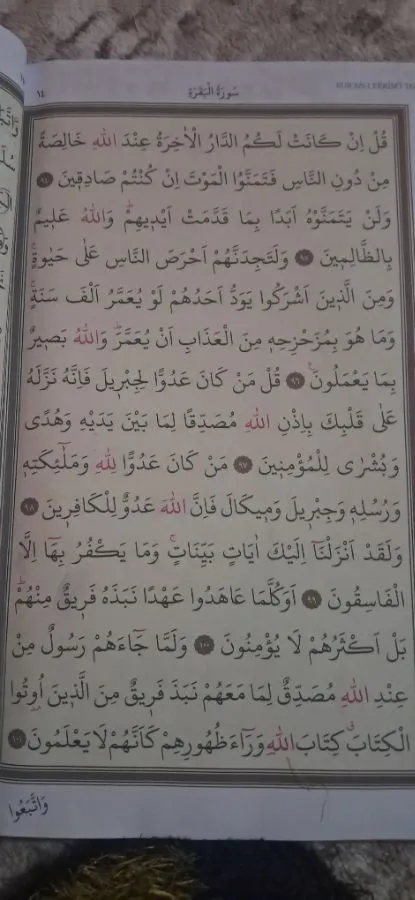 KUR'AN-I KERİM'İ
١٤
سُورَةُ الْبَقَرَةِ
قُلْ اِنْ كَانَتْ لَكُمُ الدَّارُ الْاٰخِرَةُ عِنْدَ اللّٰهِ خَالِصَةً
مِنْ دُونِ النَّاسِ فَتَمَنَّوُا الْمَوْتَ اِنْ كُنْتُمْ صَادِقٖينَ ٩٤
وَلَنْ يَتَمَنَّوْهُ اَبَدًا بِمَا قَدَّمَتْ اَيْدٖيهِمْۜ وَاللّٰهُ عَلٖيمٌ
بِالظَّالِمٖينَ ٩٥ وَلَتَجِدَنَّهُمْ اَحْرَصَ النَّاسِ عَلٰى حَيٰوةٍۚ
وَمِنَ الَّذٖينَ اَشْرَكُوا يَوَدُّ اَحَدُهُمْ لَوْ يُعَمَّرُ اَلْفَ سَنَةٍۚ
وَمَا هُوَ بِمُزَحْزِحِهٖ مِنَ الْعَذَابِ اَنْ يُعَمَّرَۜ وَاللّٰهُ بَصٖيرٌ
بِمَا يَعْمَلُونَ۟ ٩٦ قُلْ مَنْ كَانَ عَدُوًّا لِجِبْرٖيلَ فَاِنَّهُ نَزَّلَهُ
عَلٰى قَلْبِكَ بِاِذْنِ اللّٰهِ مُصَدِّقًا لِمَا بَيْنَ يَدَيْهِ وَهُدًى
وَبُشْرٰى لِلْمُؤْمِنٖينَ ٩٧ مَنْ كَانَ عَدُوًّا لِلّٰهِ وَمَلٰٓئِكَتِهٖ
وَرُسُلِهٖ وَجِبْرٖيلَ وَمٖيكَالَ فَاِنَّ اللّٰهَ عَدُوٌّ لِلْكَافِرٖينَ ٩٨
وَلَقَدْ اَنْزَلْنَٓا اِلَيْكَ اٰيَاتٍ بَيِّنَاتٍۚ وَمَا يَكْفُرُ بِهَٓا اِلَّا
الْفَاسِقُونَ ٩٩ اَوَكُلَّمَا عَاهَدُوا عَهْدًا نَبَذَهُ فَرٖيقٌ مِنْهُمْۜ
بَلْ اَكْثَرُهُمْ لَا يُؤْمِنُونَ ١٠٠ وَلَمَّا جَٓاءَهُمْ رَسُولٌ مِنْ
عِنْدِ اللّٰهِ مُصَدِّقٌ لِمَا مَعَهُمْ نَبَذَ فَرٖيقٌ مِنَ الَّذٖينَ اُو۫تُوا
الْكِتَابَۗ كِتَابَ اللّٰهِ وَرَٓاءَ ظُهُورِهِمْ كَاَنَّهُمْ لَا يَعْلَمُونَ ١٠١
وَاتَّبَعُوا